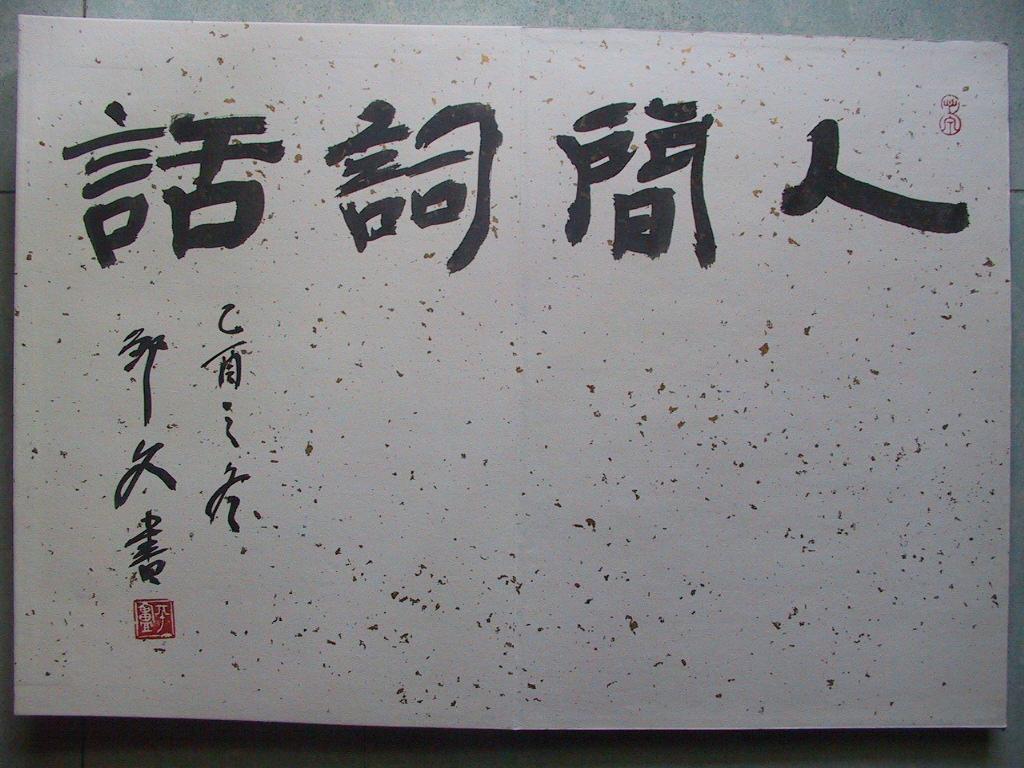 人間詞話
乙酉之冬
邹文書